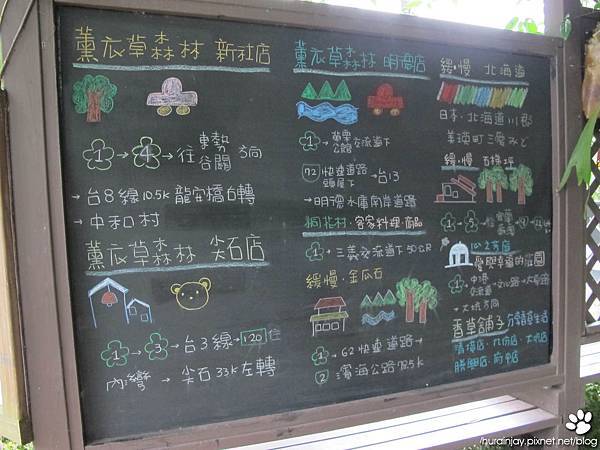 薰衣草森林 新社店
1 → 4 → 往 東勢 谷關 方向
→ 台8線 10.5K 龍安橋右轉
→ 中和村
薰衣草森林 尖石店
1 → 3 → 台3線 → 120 往
內灣 → 尖石 33K 左轉
薰衣草森林 明德店
1 → 苗栗 公館 交流道下
72 快速道路 頭屋下 → 台13
→ 明德水庫南岸道路
桐花村·客家料理·商品
1 → 三義交流道下 50公尺
緩慢·金瓜石
1 → 62 快速道路 →
2 濱海公路 72.5K
緩·慢 北海道
日本·北海道 川郡
美瑛町
緩·慢 石梯坪
1 → 5 →
心之芳庭
1 → 中港 交流道 →
→ 大坑方向
香草舖子 分享香草生活
清境店·九份店·大坑店
勝興店·府中店
/hurainjay.pixnet.net/blog